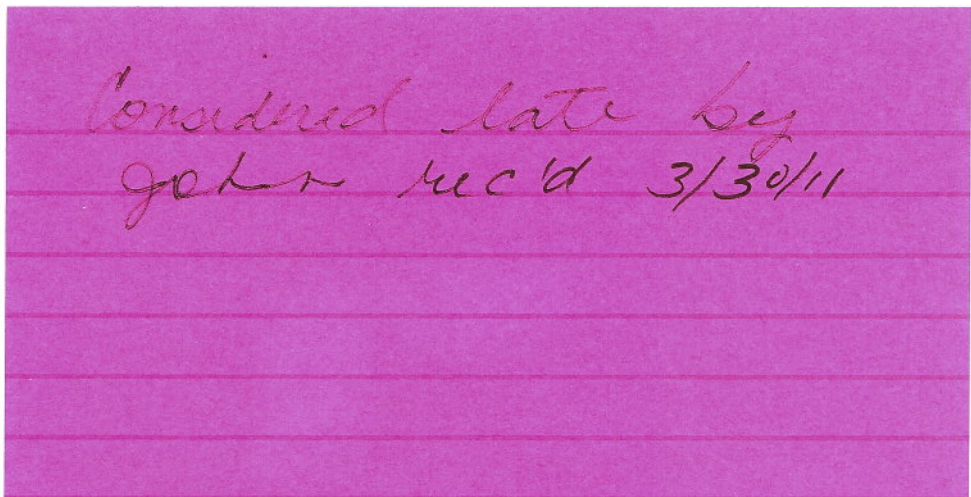 Considered late by
John rec'd 3/30/11